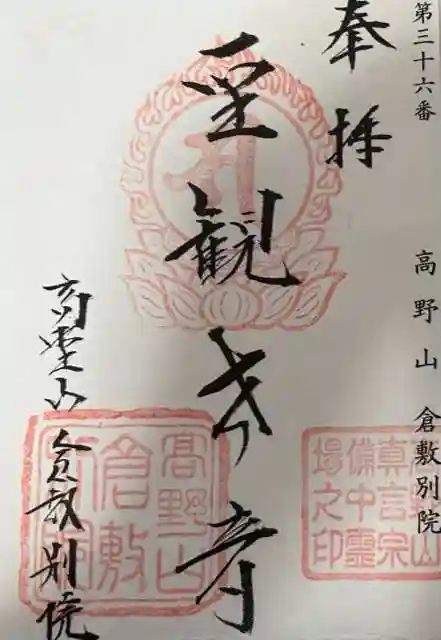 第三十六番 高野山 倉敷別院
奉拝
聖観音
高野山 倉敷別院
高野山
倉敷
別院
真言宗
備中霊
場之印